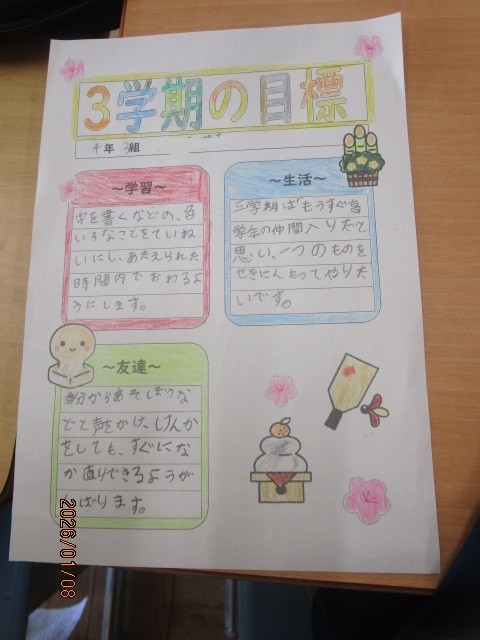 3学期の目標
4年 3組
～学習～
字を書くなどの、色
いろなことをていね
いにし、あたえられた
時間内でおわるよ
うにします。
～生活～
三学期はもうすぐ高
学年の仲間入りだと
思い、一つのものを
せきにんもってやりた
いです。
～友達～
自分からあそぼうな
どと声をかけ、けんか
をしても、すぐにな
か直りできるようが
んばります。
2026/01/08